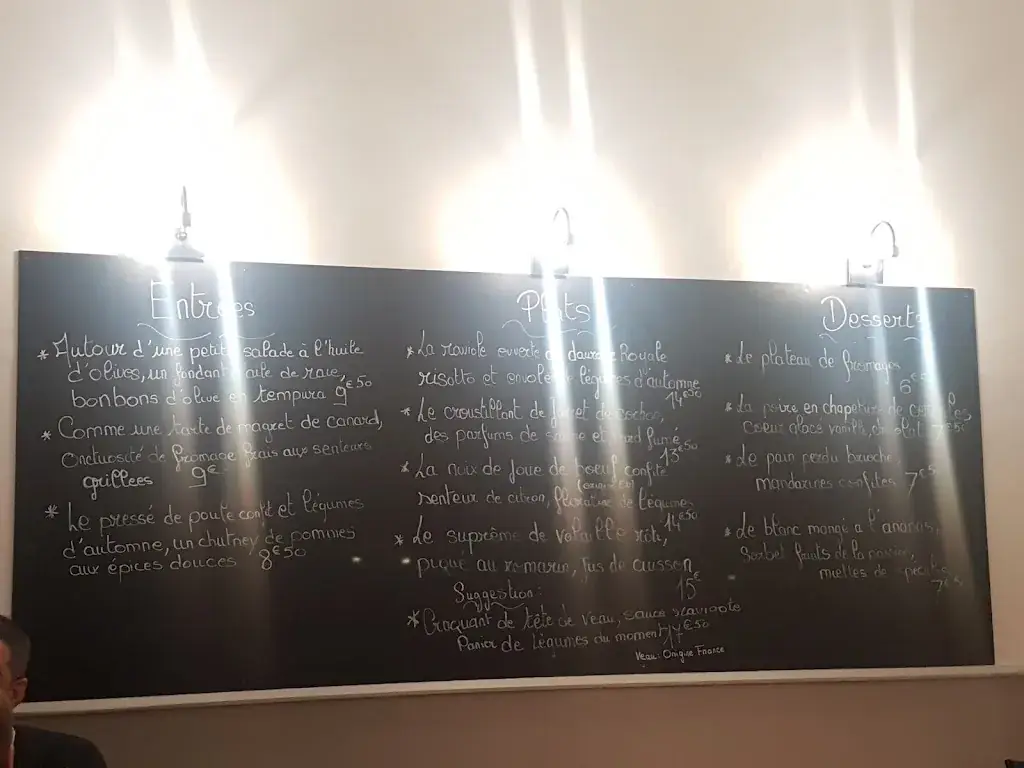 Entrées
* Autour d'une petite salade à l'huile
d'olives, un fondant aile de raie,
bonbons d'olive en tempura 9€50
* Comme une tarte de magret de canard,
Onctuosité de fromage frais aux senteurs
grillées 9€
* Le pressé de poule confit et légumes
d'automne, un chutney de pommes
aux épices douces 8€50
Plats
* La raviole ouverte de daurade Royale
risotto et envolée légumes d'automne
14€50
* Le croustillant de jarret de cochon,
des parfums de et lard fumé
13€50
* La noix de joue de boeuf confite
senteur de citron, de légumes
14€50
* Le suprême de volaille rôti,
piqué au romarin, jus de cuisson
15€
Suggestion:
* Croquant de tête de veau, sauce ravigote
Panier de légumes du moment €50
Veau: Origine France
Desserts
* Le plateau de fromages
6€
* La poire en chapelure de
coeur glacé vanille, chocolat 7€50
* Le pain perdu brioché,
mandarines confites 7€5
* Le blanc mangé a l'ananas,
Sorbet fruits de la passion,
miettes de
7€5